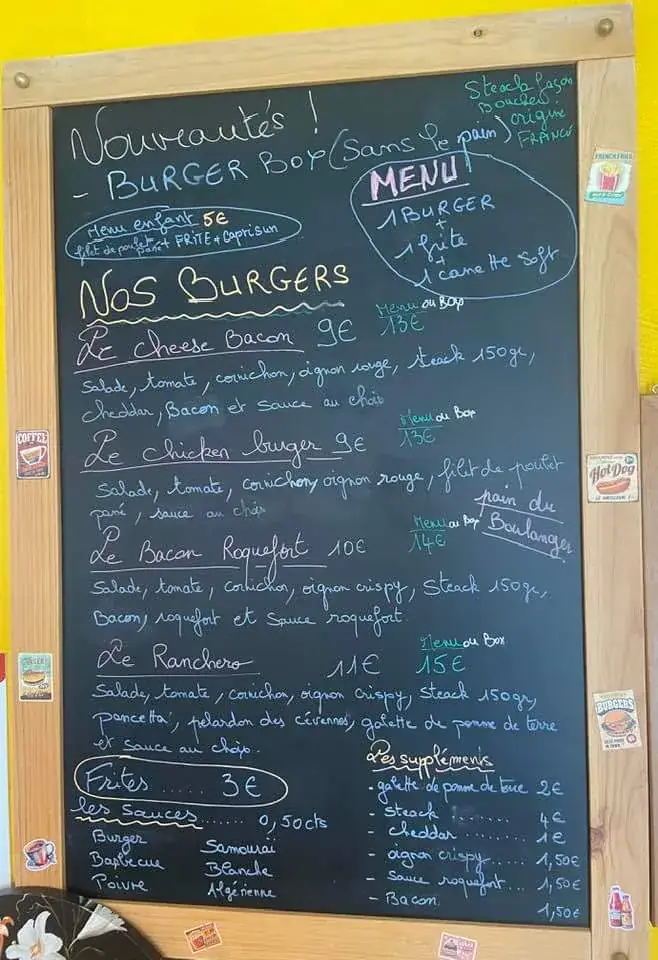 Nouveautés !
- BURGER BOX (Sans le pain)
Steack façon
Boucher
origine
FRANCE
Menu enfant 5€
filet de poulet pané + FRITE + Caprisun
MENU
1 BURGER
+
1 frite
+
1 canette soft
NOS BURGERS
Le cheese Bacon 9€
Menu ou Box
13€
Salade, tomate, cornichon, oignon rouge, steack 150gr,
cheddar, Bacon et sauce au choix
Le chicken burger 9€
Menu ou Box
13€
Salade, tomate, cornichon, oignon rouge, filet de poulet
pané, sauce au choix
pain du
Boulanger
Le Bacon Roquefort 10€
Menu ou Box
14€
Salade, tomate, cornichon, oignon crispy, Steack 150gr,
Bacon, roquefort et sauce roquefort.
Le Ranchero 11€
Menu ou Box
15€
Salade, tomate, cornichon, oignon crispy, steack 150gr,
pancetta, pelardon des cévennes, galette de pomme de terre
et sauce au choix.
Frites ...... 3€
les sauces ....... 0,50cts
Burger
Samourai
Barbecue
Blanche
Poivre
Algérienne
Les suppléments
- galette de pomme de terre 2€
- Steack ........ 4€
- cheddar ........ 1€
- oignon crispy ..... 1,50€
- sauce roquefort ... 1,50€
- Bacon 1,50€
FRENCH FRIES
COFFEE
Hot Dog
BURGERS